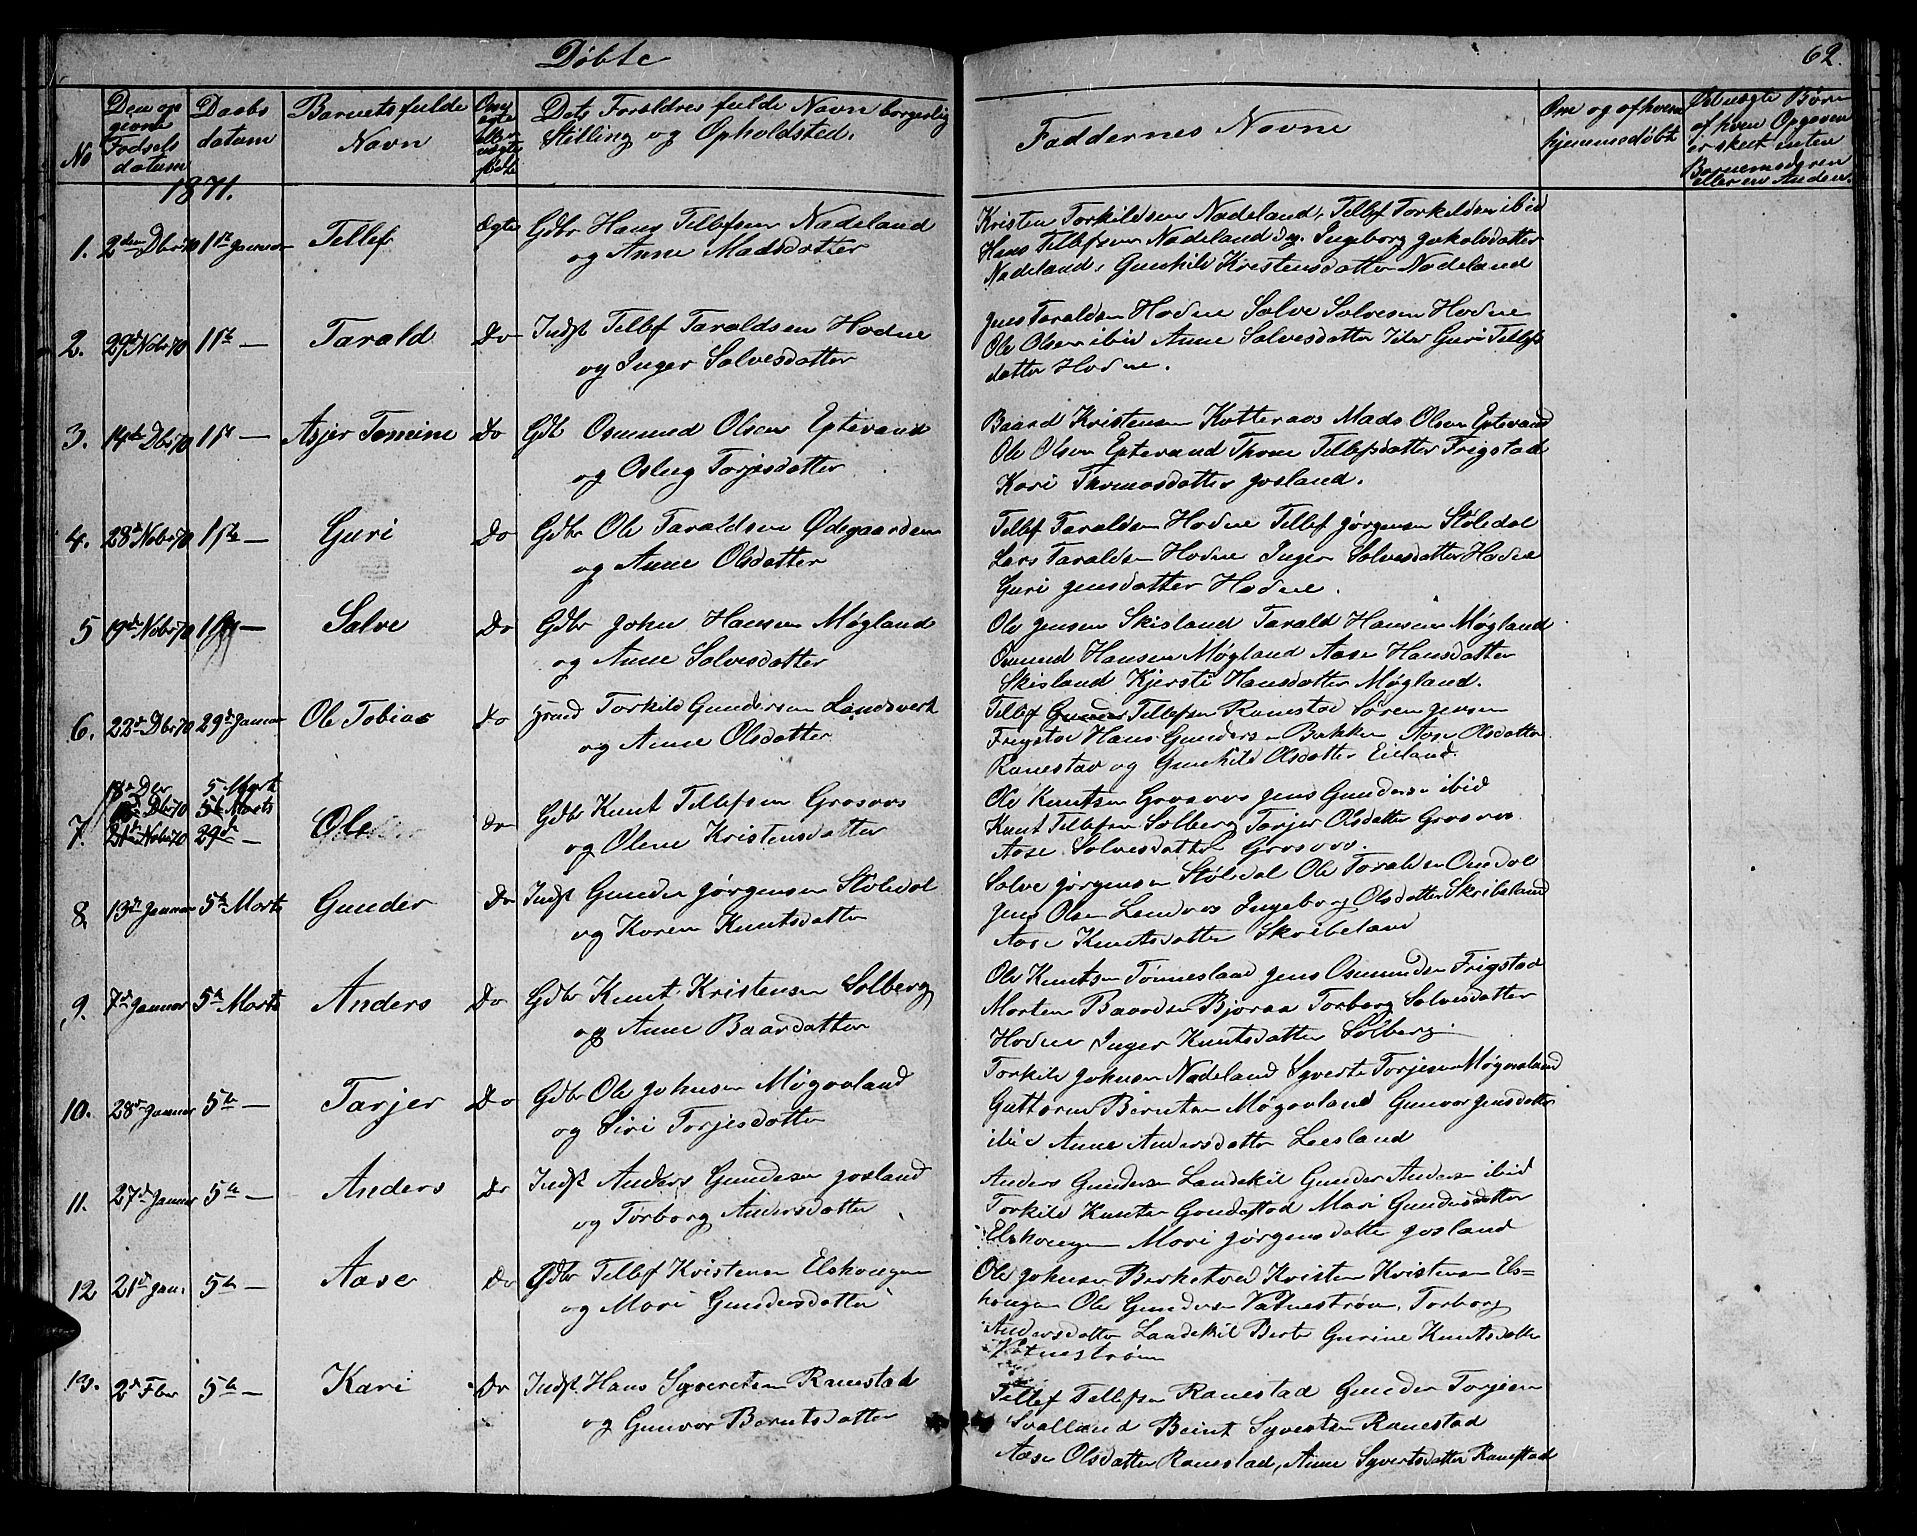 Døbte
62.
No
Den op
givne
Fødsels
datum
Daabs
datum
Barnets fulde
Navn
Om
ægte
eller
uægte
født
Dets Forældres fulde Navn borgerlig
Stilling og Opholdsted.
Faddernes Navne
Om og af hvem
hjemmedøbt
Uægte Børn
af hvem Opgaven
er skeet enten
Barnemoderen
eller en Anden.
1871.
1. 2den Dbr 70 1ste Januar Tellef Ægte Gdbr Hans Tellefsen Nadeland
og Anne Madsdatter
Kristen Torkildsen Nadeland, Tellef Torkildsen ibid
Hans Tellefsen Nadeland Ingeborg Jakobsdatter
Nadeland, Gunhild Kristensdatter Nadeland
2. 29de Nobr 70 1ste — Tarald Do Indst Tellef Taraldsen Hodne
og Inger Salvesdatter
Jens Taraldsen Hodne Salve Salvesen Hodne
Ole Olsen ibid Anne Salvesdatter Guri Tellefs
datter Hodne.
3. 14de Dbr 70 1ste — Asjer Tomine Do Gdb Osmund Olsen Eptevand
og Osleg Torjusdatter
Baard Kristensen Kotteraas Mads Olsen Eptevand
Ole Olsen Eptevand Thone Tellefsdatter Frigstad
Kari Thomasdatter Josland.
4. 28de Nobr 70 1ste — Guri Do Gdbr Ole Taraldsen Ødegaarden
og Anne Olsdatter
Tellef Taraldsen Hodne Tellef Jørgensen Støledal
Lars Taraldsen Hodne Inger Salvesdatter Hodne
Guri Jensdatter Hodne.
5 19de Nobr 70 — Salve Do Gdbr John Hansen Møgland
og Anne Salvesdatter
Ole Jensen Skisland Tarald Hansen Møgland
Osmund Hansen Møgland Aase Hansdatter
Skisland Kjersti Hansdatter Møgland.
6. 22de Dbr 70 29de Januar Ole Tobias Do Torkild Gundersen Landsverk
og Anne Olsdatter
Tellef Tellefsen Ranestad Søren Jensen
Frigstad Hans Gundersen Bakken Aase Olsdatter
Ranestad og Gunhild Olsdatter Eieland.
18de Dbr 5 Marts
Dbr 70 5te Marts
7. 21de Nobr 70 29de — Ole Do Gdbr Knut Tellefsen Grosaas
og Olene Kristensdatter
Ole Knutsen Grosaas Jens Gundersen ibid
Knut Tellefsen Solberg Torjer Olsdatter Grosaas
Aase Salvesdatter Grosaas.
8 13de Januar 5te Marts Gunder Do Indst Gunder Jørgensen Støledal
og Karen Knutsdatter
Salve Jørgensen Støledal Ole Taraldsen Omdal
Jens Olsen Lendaas Ingeborg Olsdatter Skribeland
Aase Knutsdatter Skribeland
9. 7de Januar 5te Marts Anders Do Gdbr Knut Kristensen Solberg
og Anne Baardatter
Ole Knutsen Tønnesland Jens Osmundsen Frigstad
Morten Baardsen Bjoraa Torborg Salvesdatter
Hodne Inger Knutsdatter Solberg.
10. 28de Januar 5te — Tarjer Do Gdbr Ole Johnsen Møgavland
og Siri Torjesdatter
Torkild Johnsen Nadeland Syvert Torjesen Møgavland
Guttorm Berntsen Møgavland Gunvor Jensdatter
ibid Anne Andersdatter Leesland
11. 27de Januar 5te — Anders Do Indst Anders Gundersen Josland
og Torborg Andersdatter
Anders Gundersen Landekil Gunder Andersen ibid
Torkild Knutsen Mari Gundersdatter
Elshougen Mari Jørgensdatter Josland
12 21de Jan. 5te — Aase Do Gdbr Tellef Kristensen Elshougen
og Mari Gundersdatter
Ole Johnsen Birketved Kristen Kristensen Els=
hougen Ole Gundersen Vatnestrøm, Torborg
Andersdatter Landekil Berte Gurine Knutsdatter
Vatnestrøm
13. 2de Fbr 5te — Kari Do Indst Hans Syvertsen Ranestad
og Gunvor Berntsdatter
Tellef Tellefsen Ranestad Gunder Torjesen
Svalland Beint Syvertsen Ranestad
Aase Olsdatter Ranestad, Anne Syvertsdatter Ranestad